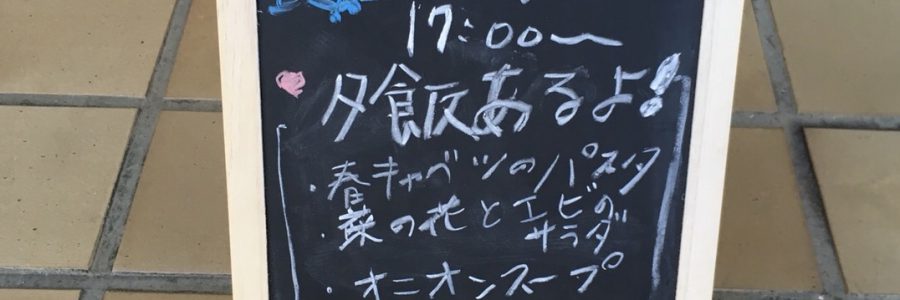 17:00〜
夕飯あるよ!
・春キャベツのパスタ
・菜の花とエビの
サラダ
・オニオンスープ